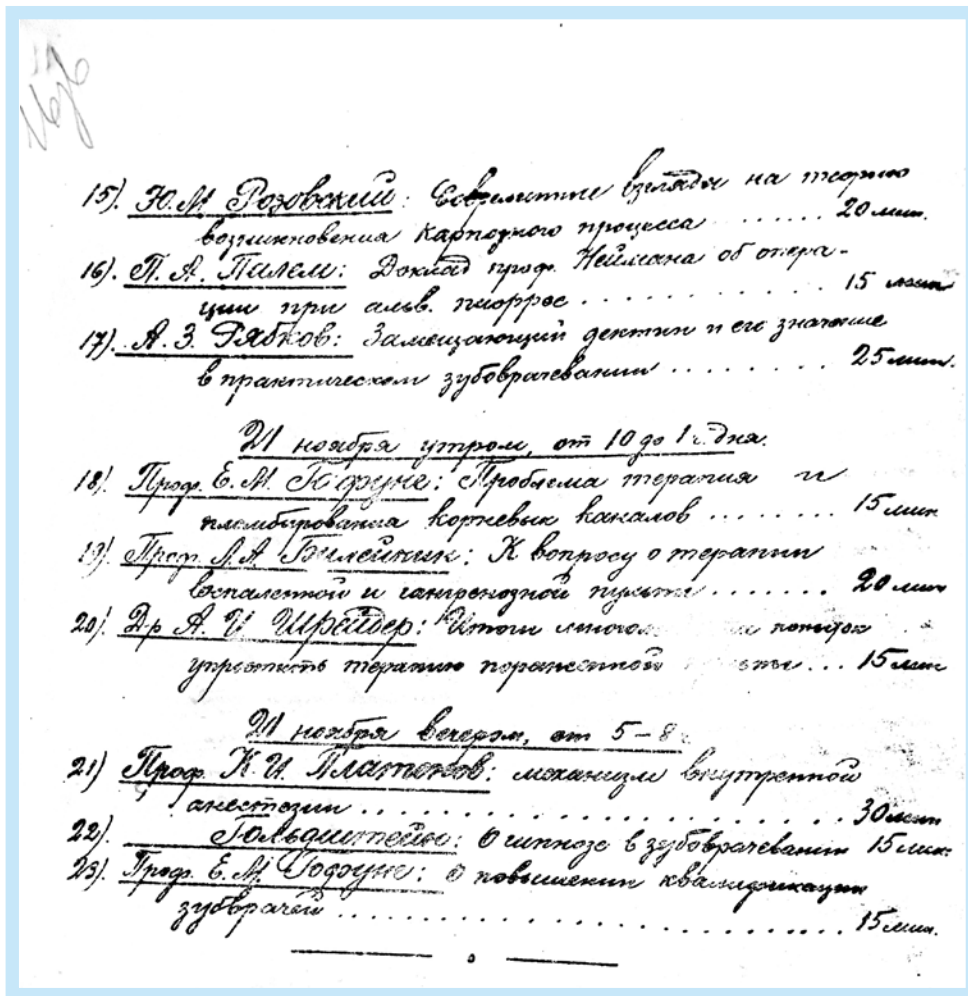 15). Ю.М Розовский: Современные взгляды на теорию
возникновения кариозного процесса ........ 20 мин.
16). П. А. Пилем: Доклад проф. Неймана об опера-
ции при альв. пиоррее ............. 15 мин
17). А. З. Рябков: Замещающий дентин и его значение
в практическом зубоврачевании ........ 25 мин.
21 ноября утром, от 10 до 1 ч. дня.
18). Проф. Е. М. Гофунг: Проблема терапия и
пломбирования корневых каналов ........ 15 мин
19). Проф. Л. А. Билейкин: К вопросу о терапии
воспаленной и гангренозной пульпы ....... 20 мин
20). Д-р А. И Шрейдер: Итоги попыток
упростить терапию пораженной ... 15 мин
21 ноября вечером, от 5-8
21) Проф. К. И. Платонов: механизм внутренной
анестезии ..................... 30 мин
22). Гольдштейн: О гипнозе в зубоврачевании 15 мин.
23). Проф. Е. М. Гофунг: О повышении квалификации
зубврачей ..................... 15 мин.